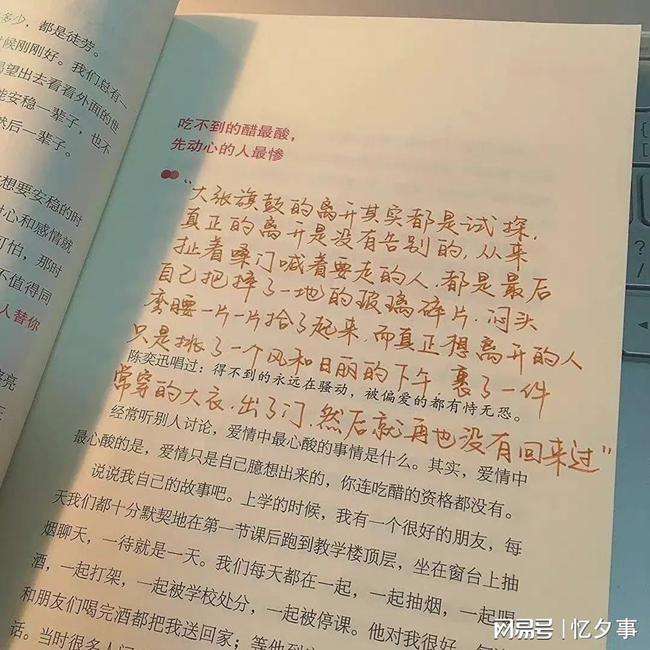 多少，都是徒劳。
候刚刚好。我们总有一
渴望出去看看外面的世
能安稳一辈子，也不
然后一辈子。
想要安稳的时
心和感情就
可怕，那时
不值得同
人替你
吃不到的醋最酸，
先动心的人最惨
“大张旗鼓的离开其实都是试探，
真正的离开是没有告别的，从来
扯着嗓门喊着要走的人，都是最后
自己把摔了一地的玻璃碎片，闷头
弯腰一片一片拾了起来，而真正想离开的人
只是挑了一个风和日丽的下午，裹了一件
陈奕迅唱过：得不到的永远在骚动，被偏爱的都有恃无恐。
常穿的大衣，出了门，然后就再也没有回来过”
经常听别人讨论，爱情中最心酸的事情是什么。其实，爱情中
最心酸的是，爱情只是自己臆想出来的，你连吃醋的资格都没有。
说说我自己的故事吧。上学的时候，我有一个很好的朋友，每
天我们都十分默契地在第一节课后跑到教学楼顶层，坐在窗台上抽
烟聊天，一待就是一天。我们每天都在一起，一起抽烟，一起喝
酒，一起打架，一起被学校处分，一起被停课。他对我很好，每
和朋友们喝完酒都把我送回家；等他到
话。当时很多人
网易号 | 忆夕事